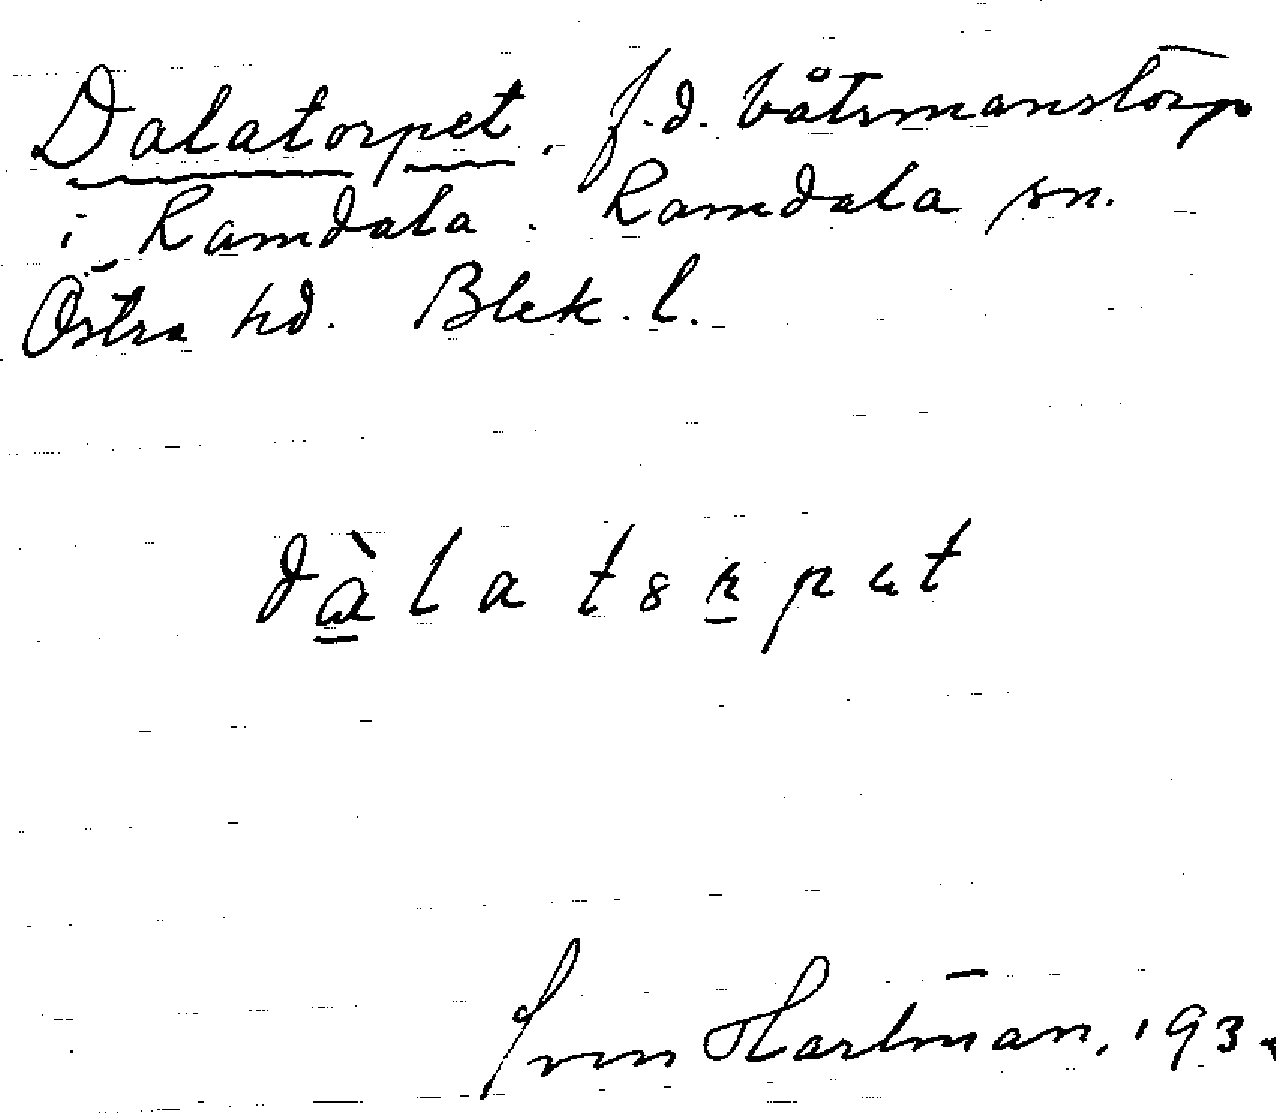 Dalatorpet. f.d. båtsmanstorp
i Ramdala. Ramdala sn.
Östra hd. Blek. l.
dàlatorpet
Sven Hartman, 193